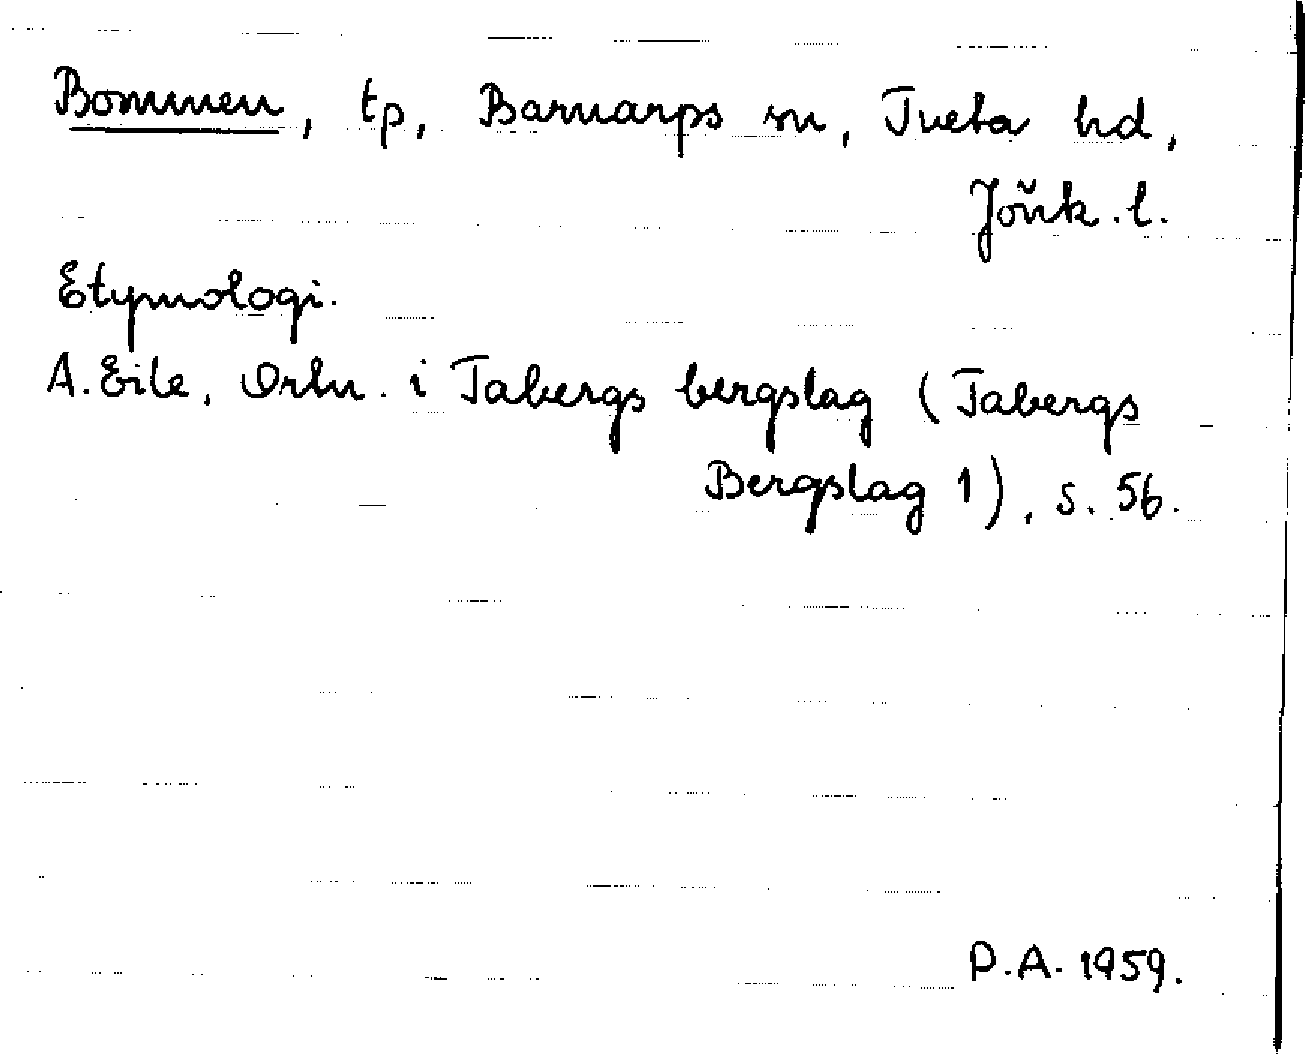 Bommen, tp, Barnarps sn, Tveta hd,
Jönk. l.
Etymologi.
A. Eile, Ortn. i Tabergs bergslag (Tabergs
Bergslag 1), s. 56.
P.A. 1959.